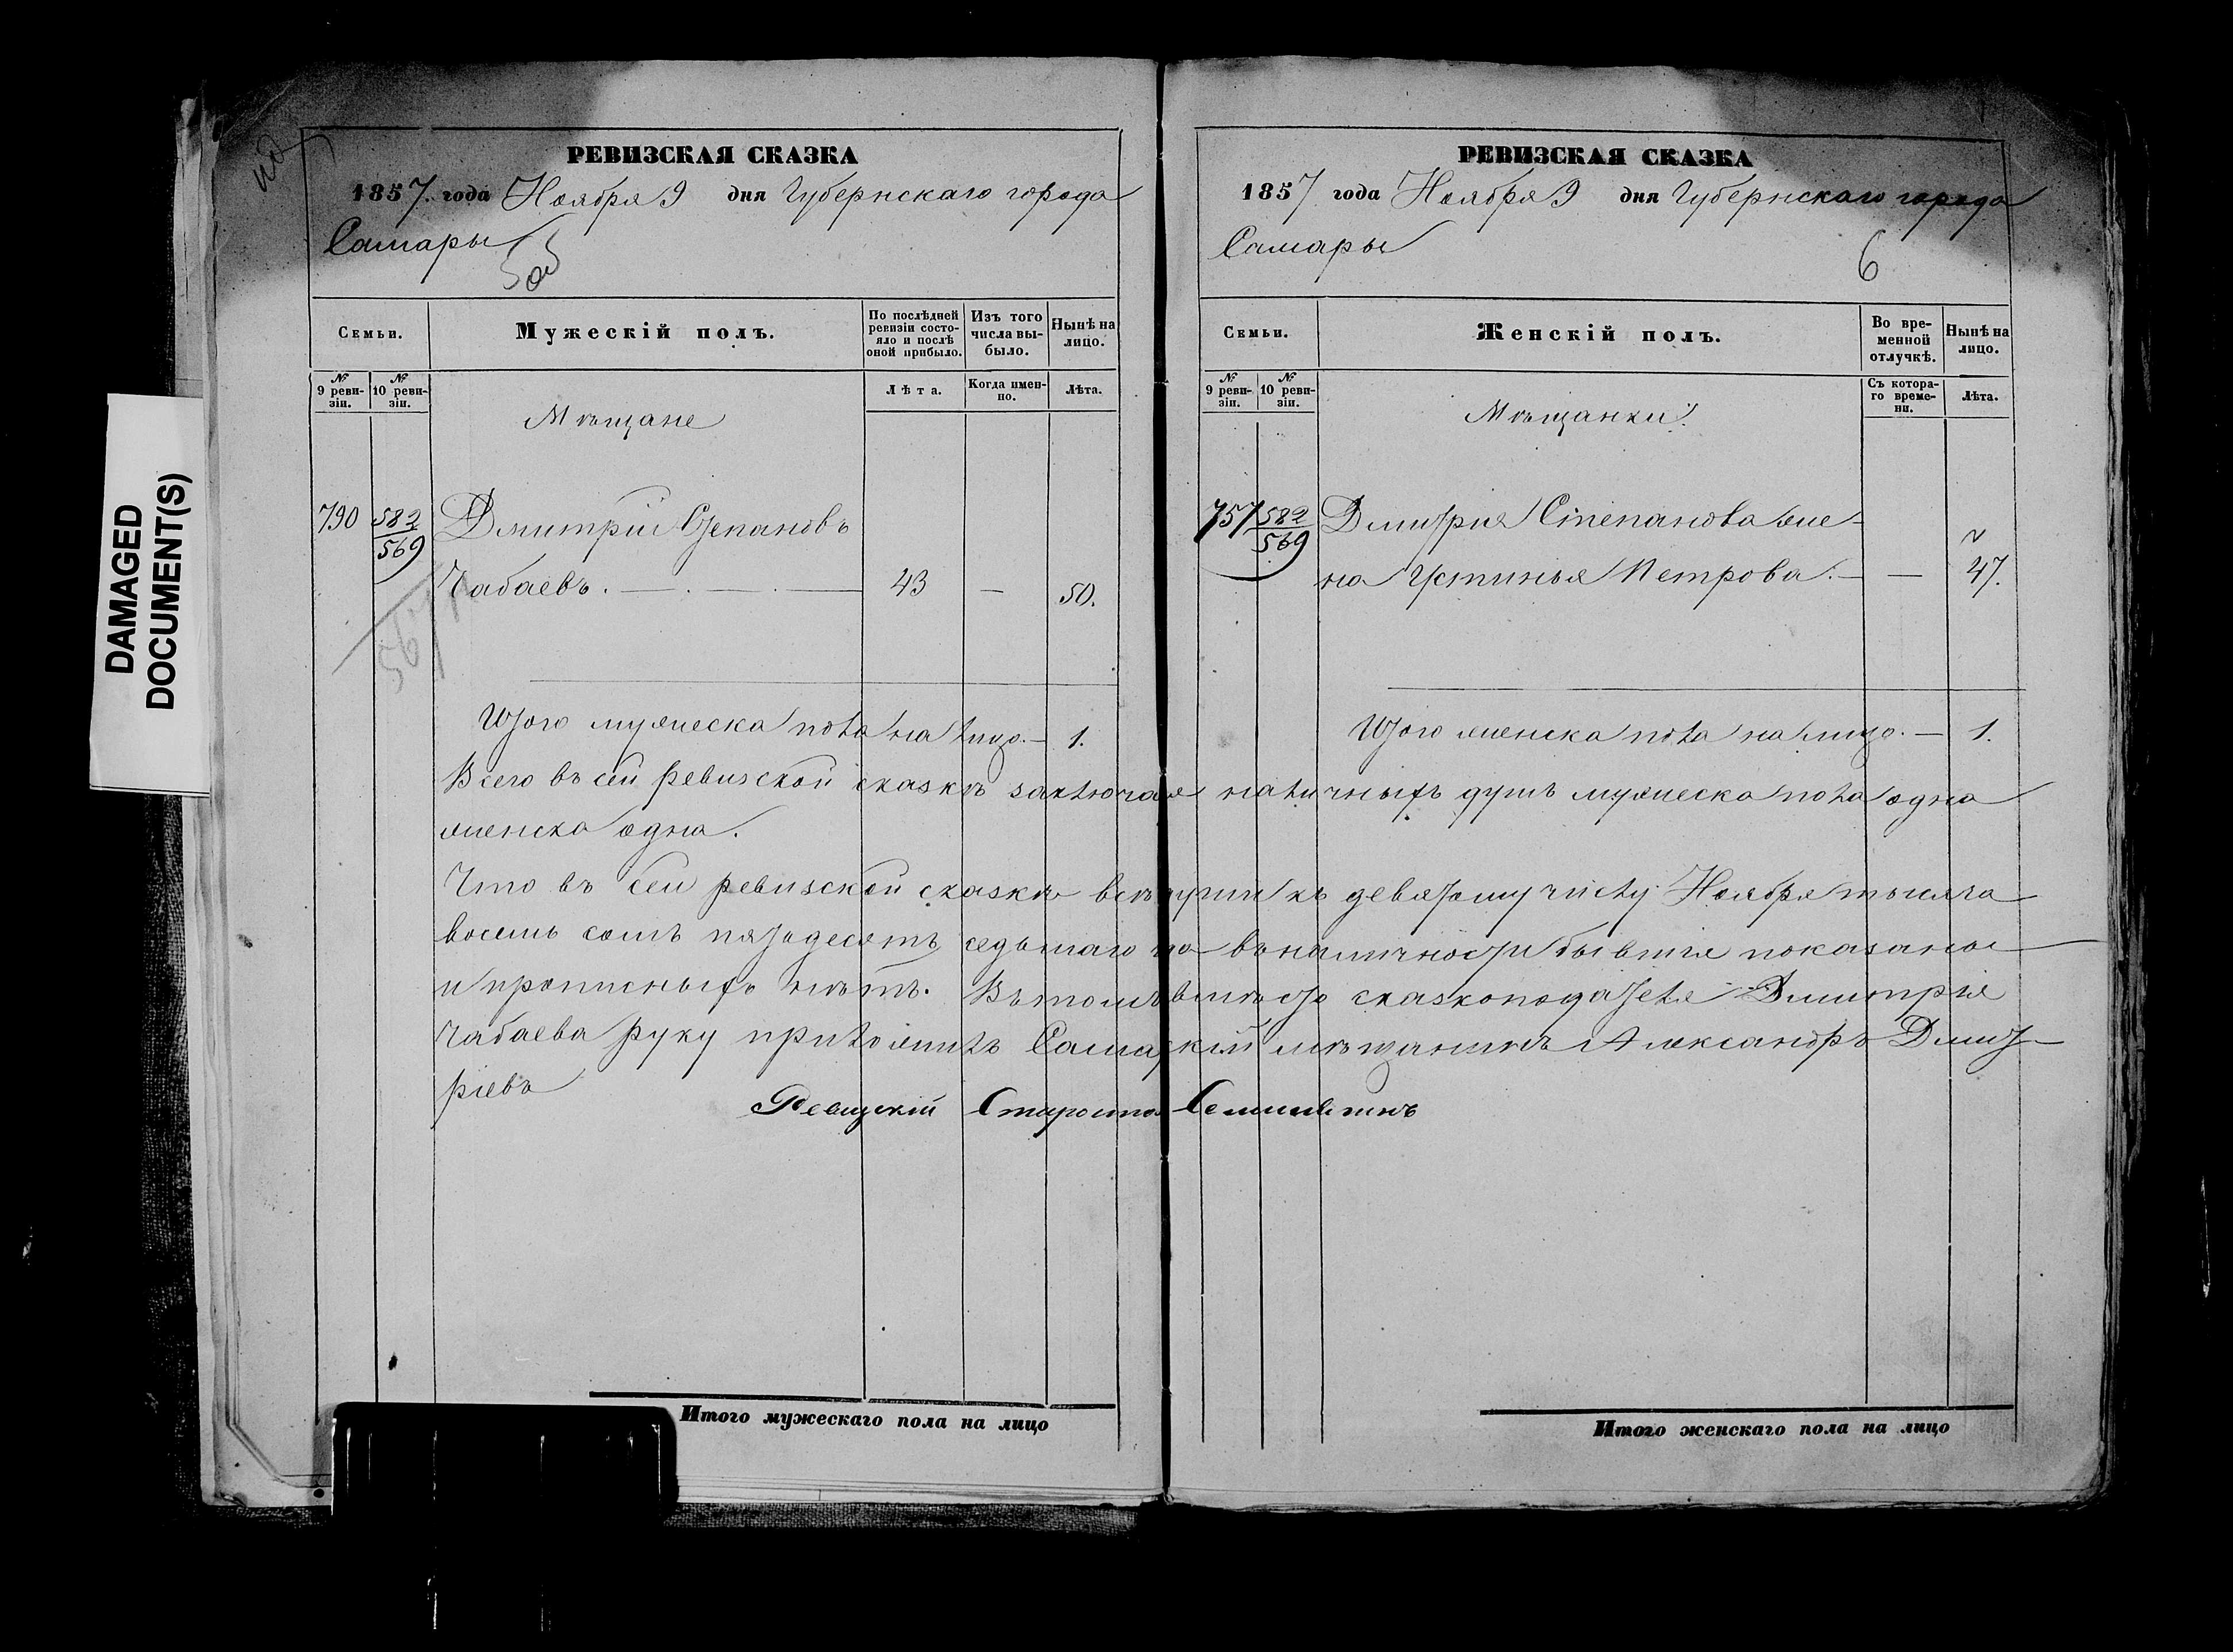 DAMAGED
DOCUMENT(S)
РЕВИЗСКАЯ СКАЗКА
1857. года Ноября 9 дня Губернскаго города
Самары
Семьи.
Мужескій полъ.
По послѣдней ревизіи состояло и послѣ оной прибыло.
Изъ того числа выбыло.
Нынѣ на лицо.
№ 9 ревизіи.
№ 10 ревизіи.
Лѣта.
Когда именно.
Лѣта.
Мѣщане
790 582/569 Дмитрій Степановъ
Чабаевъ. 43 — 50.
Итого мужеска пола на лицо. — 1.
РЕВИЗСКАЯ СКАЗКА
1857 года Ноября 9 дня Губернскаго города
Самары
6
Семьи.
Женскій полъ.
Во временной отлучкѣ.
Нынѣ на лицо.
№ 9 ревизіи.
№ 10 ревизіи.
Съ котораго времени.
Лѣта.
Мѣщанки.
757 582/569 Дмитрія Степанова же-
на Устинья Петрова. — — 47.
Итого женска пола на лицо. — 1.
Всего въ сей ревизской сказкѣ заключая наличныхъ душъ мужеска пола одна
женска одна.
Что въ сей ревизской сказкѣ всѣ души къ девятому числу Ноября тысяча
восемь сотъ пятьдесятъ седьмаго го въ наличности бывшія показаны
и прописныхъ нѣтъ. Въ томъ вмѣсто сказкоподателя Дмитрія
Чабаева руку приложилъ Самарскій мѣщанинъ Александръ Дмит-
ріевъ
Ревизскій Староста
Итого мужескаго пола на лицо
Итого женскаго пола на лицо